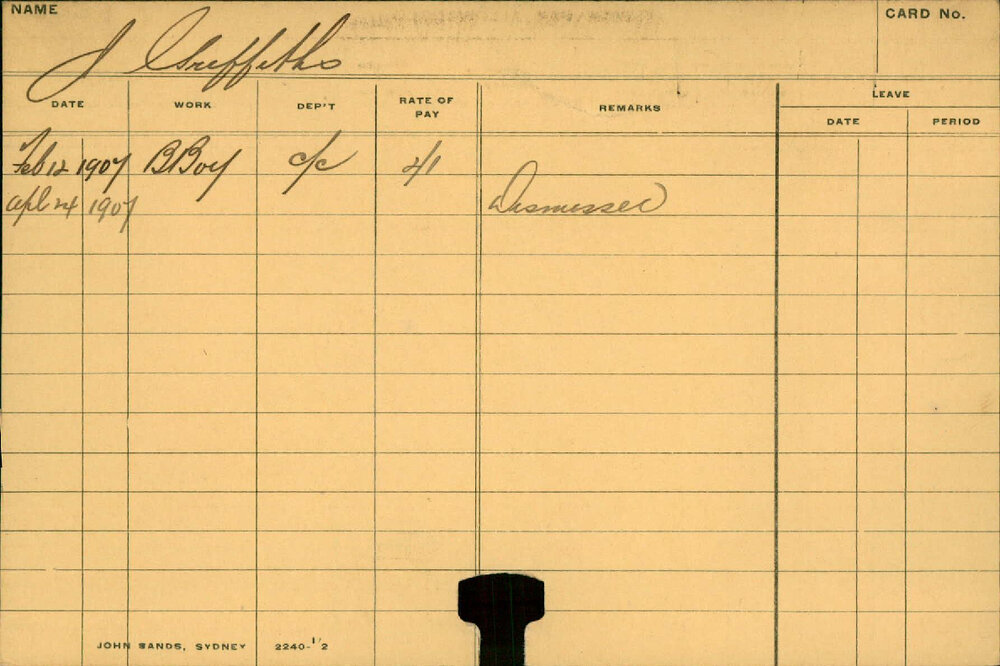 NAME
CARD No.
J Griffiths
DATE WORK DEP'T RATE OF PAY REMARKS LEAVE
DATE PERIOD
Feb 12 1907 BBoy c/c 4/1
Apl 24 1907 Dismissed
JOHN SANDS, SYDNEY 2240-1/2